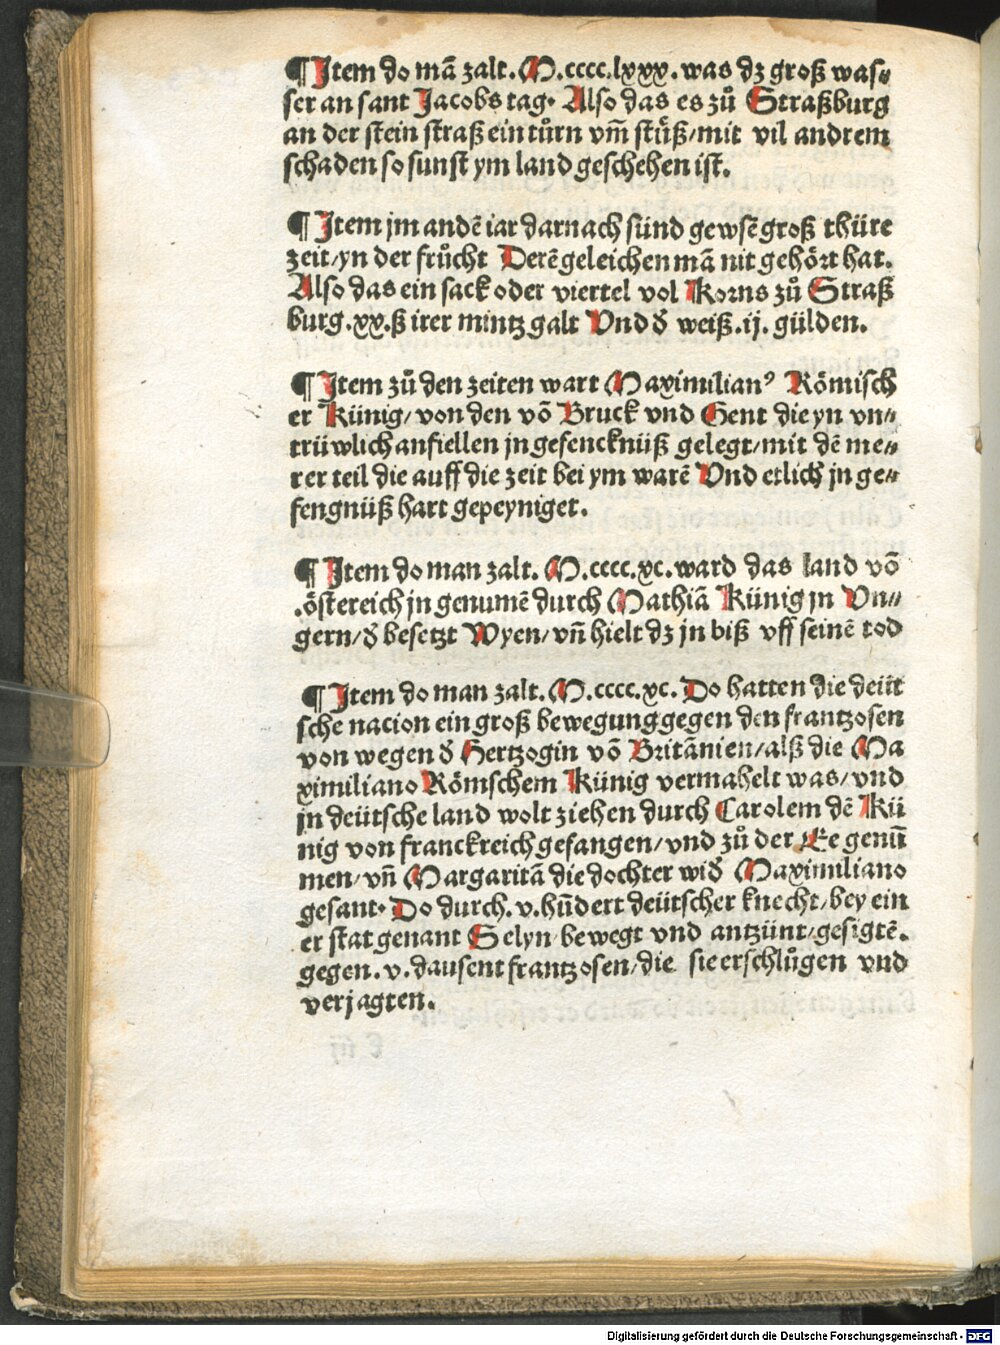 ¶ Jtem do mā zalt. M.cccc.lxxx. was dz groß was⸗
ser an sant Jacobs tag. Also das es zů Straßburg
an der stein straß ein tůrn vm̄ stůß/mit vil andrem
schaden so sunst ym land geschehen ist.
¶ Jtem jm andē iar darnach sünd gewsē groß thüre
zeit/yn der frůcht Derē geleichen mā nit gehört hat.
Also das ein sack oder viertel vol Korns zů Straß
burg.xx.ß irer mintz galt Vnd ð weiß.ij. gülden.
¶ Jtem zů den zeiten wart Maximilianꝰ Römisch
er Künig/von den vō Bruck vnd Gent die yn vn⸗
trüwlich anfiellen jn gefencknüß gelegt/mit dē me⸗
rer teil die auff die zeit bei ym warē Vnd etlich jn ge⸗
fengnüß hart gepeyniget.
¶ Jtem do man zalt. M.cccc.xc. ward das land vō
.östereich jn genumē durch Mathiā Künig jn Vn⸗
gern/ð besetzt Wyen/vn̄ hielt dz jn biß vff seinē tod
¶ Jtem do man zalt. M.cccc.xc. Do hatten die deüt
sche nacion ein groß bewegung gegen den frantzosen
von wegen ð Hertzogin vō Britānien/alß die Ma
ximiliano Römschem Künig vermahelt was/vnd
jn deütsche land wolt ziehen durch Carolem dē Kü
nig von franckreich gefangen/vnd zů der Ee genū
men/vn̄ Margaritā die dochter wið Maximiliano
gesant. Do durch.v.hūdert deütscher knecht/bey ein
er stat genant Selyn bewegt vnd antzünt/gesigtē.
gegen.v.dausent frantzosen/die sie erschlůgen vnd
verjagten.
Digitalisierung gefördert durch die Deutsche Forschungsgemeinschaft - DFG